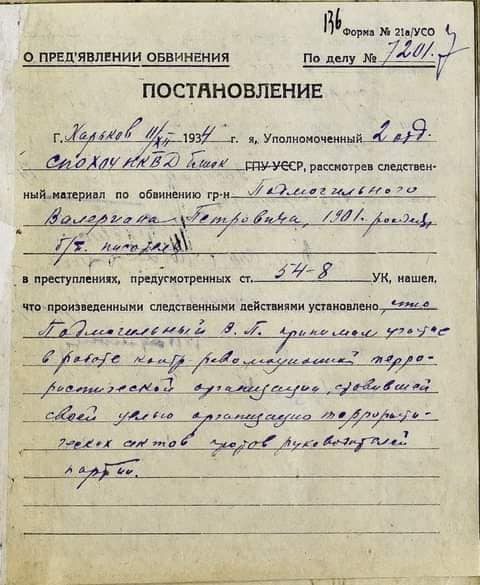 136
Форма № 21а/УСО
О ПРЕД'ЯВЛЕНИИ ОБВИНЕНИЯ
По делу № 7201.
ПОСТАНОВЛЕНИЕ
Г. Харьков 11/XII 1934 г. я, Уполномоченный 2 отд.
СПО ХОУ НКВД Блок ГПУ УССР, рассмотрев следствен-
ный материал по обвинению гр-н Подмогильного
Валериана Петровича, 1901. рожд,
б/п. писатель
в преступлениях, предусмотренных ст. 54-8 УК, нашел,
что произведенными следственными действиями установлено, что
Подмогильный В. П. принимал участие
в работе контр революционной терро-
ристической организации, ставившей
своей целью организацию террористи-
ческих актов против руководителей
партии.